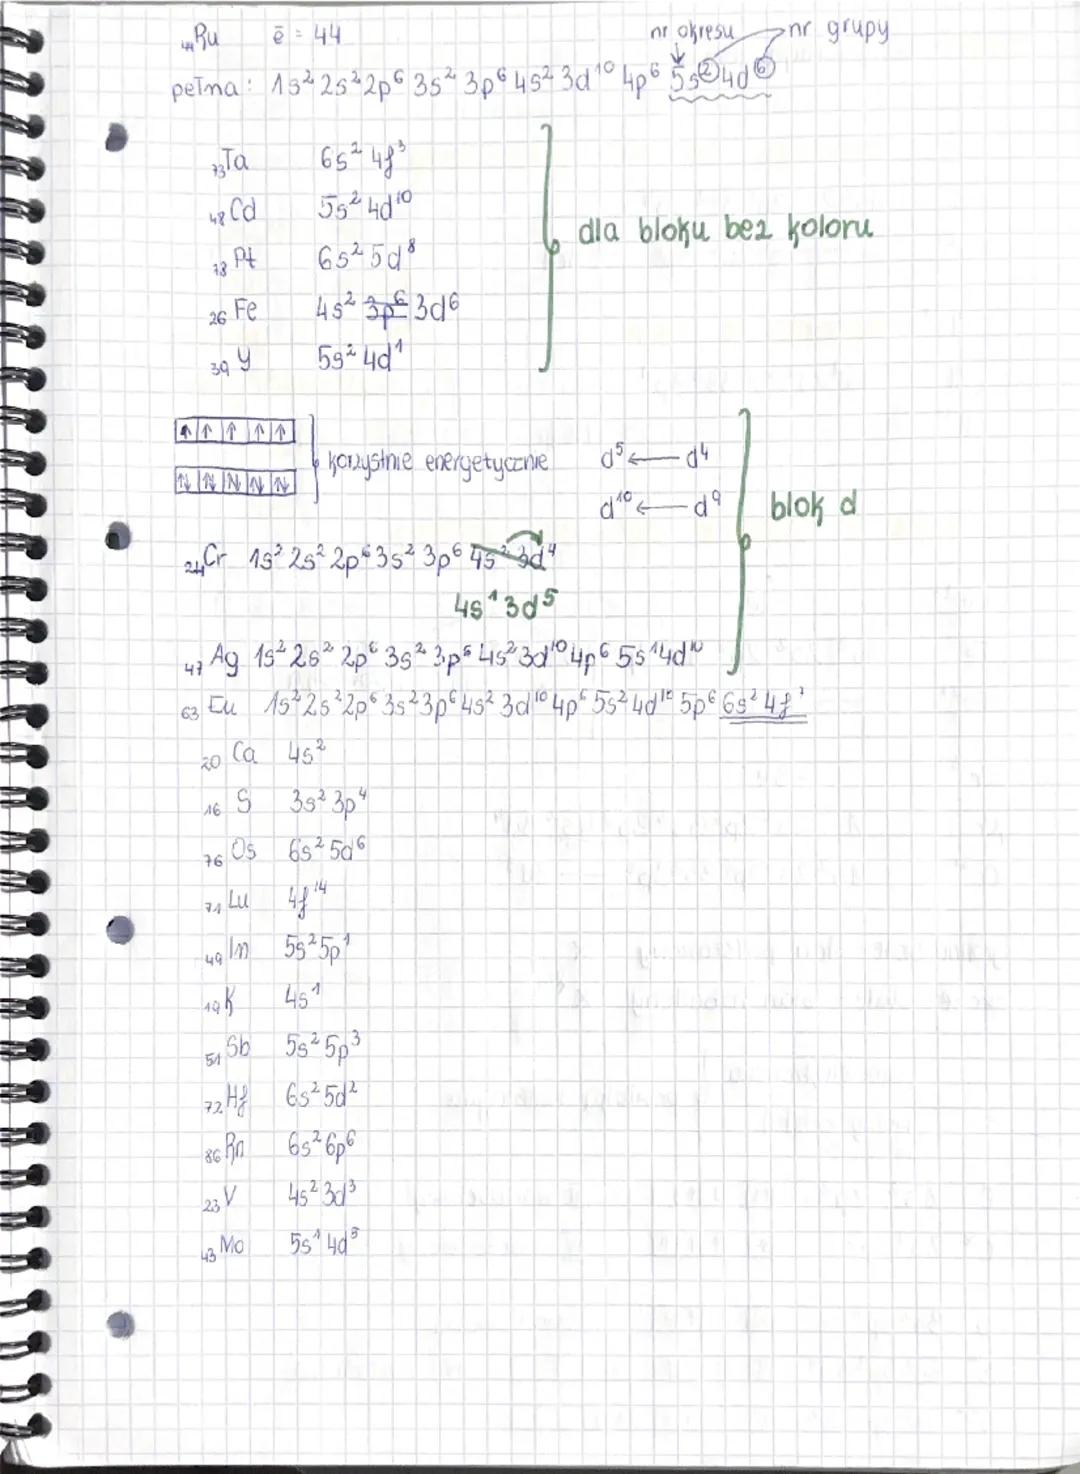 ₄₄Ru ē = 44 nr okresu nr grupy
pełna: 1s² 2s² 2p⁶ 3s² 3p⁶ 4s² 3d¹⁰ 4p⁶ 5s² 4d⁶
₇₃Ta 6s² 4f³
₄₈Cd 5s² 4d¹⁰
dla bloku bez koloru
₇₈Pt 6s² 5d⁸
₂₆Fe 4s² 3p⁶ 3d⁶
₃₉Y 5s² 4d¹
↑ ↑ ↑ ↑ ↑
korzystnie energetycznie d⁵ ← d⁴
↑↓ ↑↓ ↑↓ ↑↓ ↑↓
d¹⁰ ← d⁹ blok d
₂₄Cr 1s² 2s² 2p⁶ 3s² 3p⁶ 4s² 3d⁴
4s¹ 3d⁵
₄₇Ag 1s² 2s² 2p⁶ 3s² 3p⁶ 4s² 3d¹⁰ 4p⁶ 5s¹ 4d¹⁰
₆₃Eu 1s² 2s² 2p⁶ 3s² 3p⁶ 4s² 3d¹⁰ 4p⁶ 5s² 4d¹⁰ 5p⁶ 6s² 4f⁷
₂₀Ca 4s²
₁₆S 3s² 3p⁴
₇₆Os 6s² 5d⁶
₇₁Lu 4f¹⁴
₄₉In 5s² 5p¹
₁₉K 4s¹
₅₁Sb 5s² 5p³
₇₂Hf 6s² 5d²
₈₆Rn 6s² 6p⁶
₂₃V 4s² 3d³
₄₃Mo 5s¹ 4d⁵